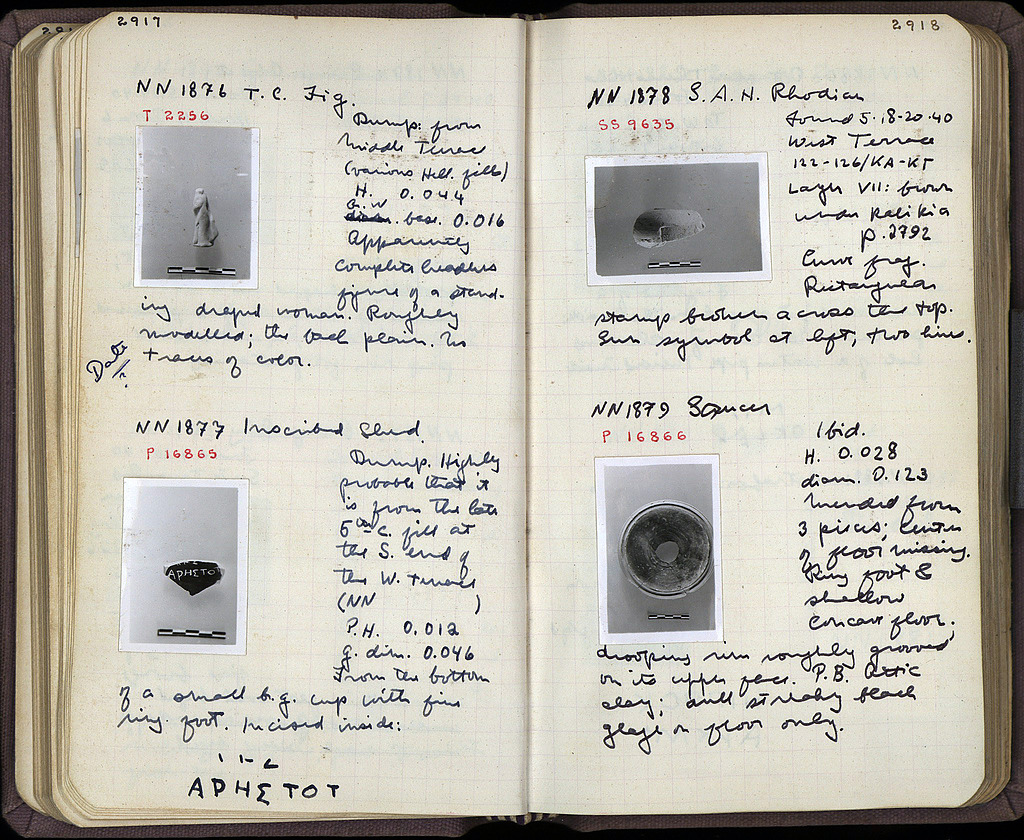 2917
NN 1876 T.C. Fig.
T 2256
Dump: from
Middle Terrace
(various Hell. fills)
H. 0.044
G.W.
diam. base. 0.016
Apparently
complete headless
figure of a stand-
ing draped woman. Roughly
modelled; the back plain. No
traces of color.
Date
?
NN 1877 Inscribed Sherd.
P 16865
Dump. Highly
probable that it
is from the late
5th c. fill at
the S. end of
the W. Terrace
(NN )
P.H. 0.012
g. dim. 0.046
From the bottom
of a small b.g. cup with fine
ring foot. Incised inside:
ΑΡΗΣΤΟΤ
ΑΡΗΣΤΟ
2918
NN 1878 S.A.H. Rhodian
SS 9635
found 5-18-20-40
West Terrace
122-126/ΚΑ-ΚΓ
Layer VII: brown
under Kalikia
p. 2792
Curve frag.
Rectangular
stamp broken across the top.
Sun symbol at left, two lines.
NN 1879 Saucer
P 16866
Ibid.
H. 0.028
diam. 0.123
Mended from
3 pieces; center
of floor missing.
Ring foot &
shallow
concave floor;
drooping rim roughly grooved
on its upper face. P.B. Attic
clay; dull streaky black
glaze on floor only.